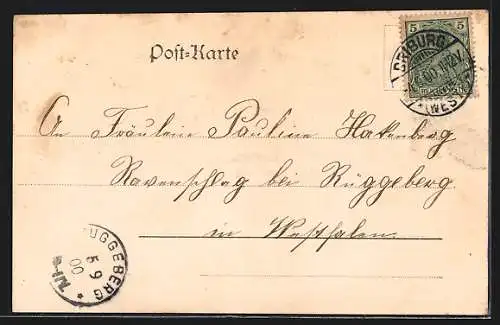 Post=Karte
5 5
DRIBURG
(WEST
An Fräulein Pauline Hakenberg
Ravenschlag bei Rüggeberg
in Westfalen.
RÜGGEBERG
5 9
00